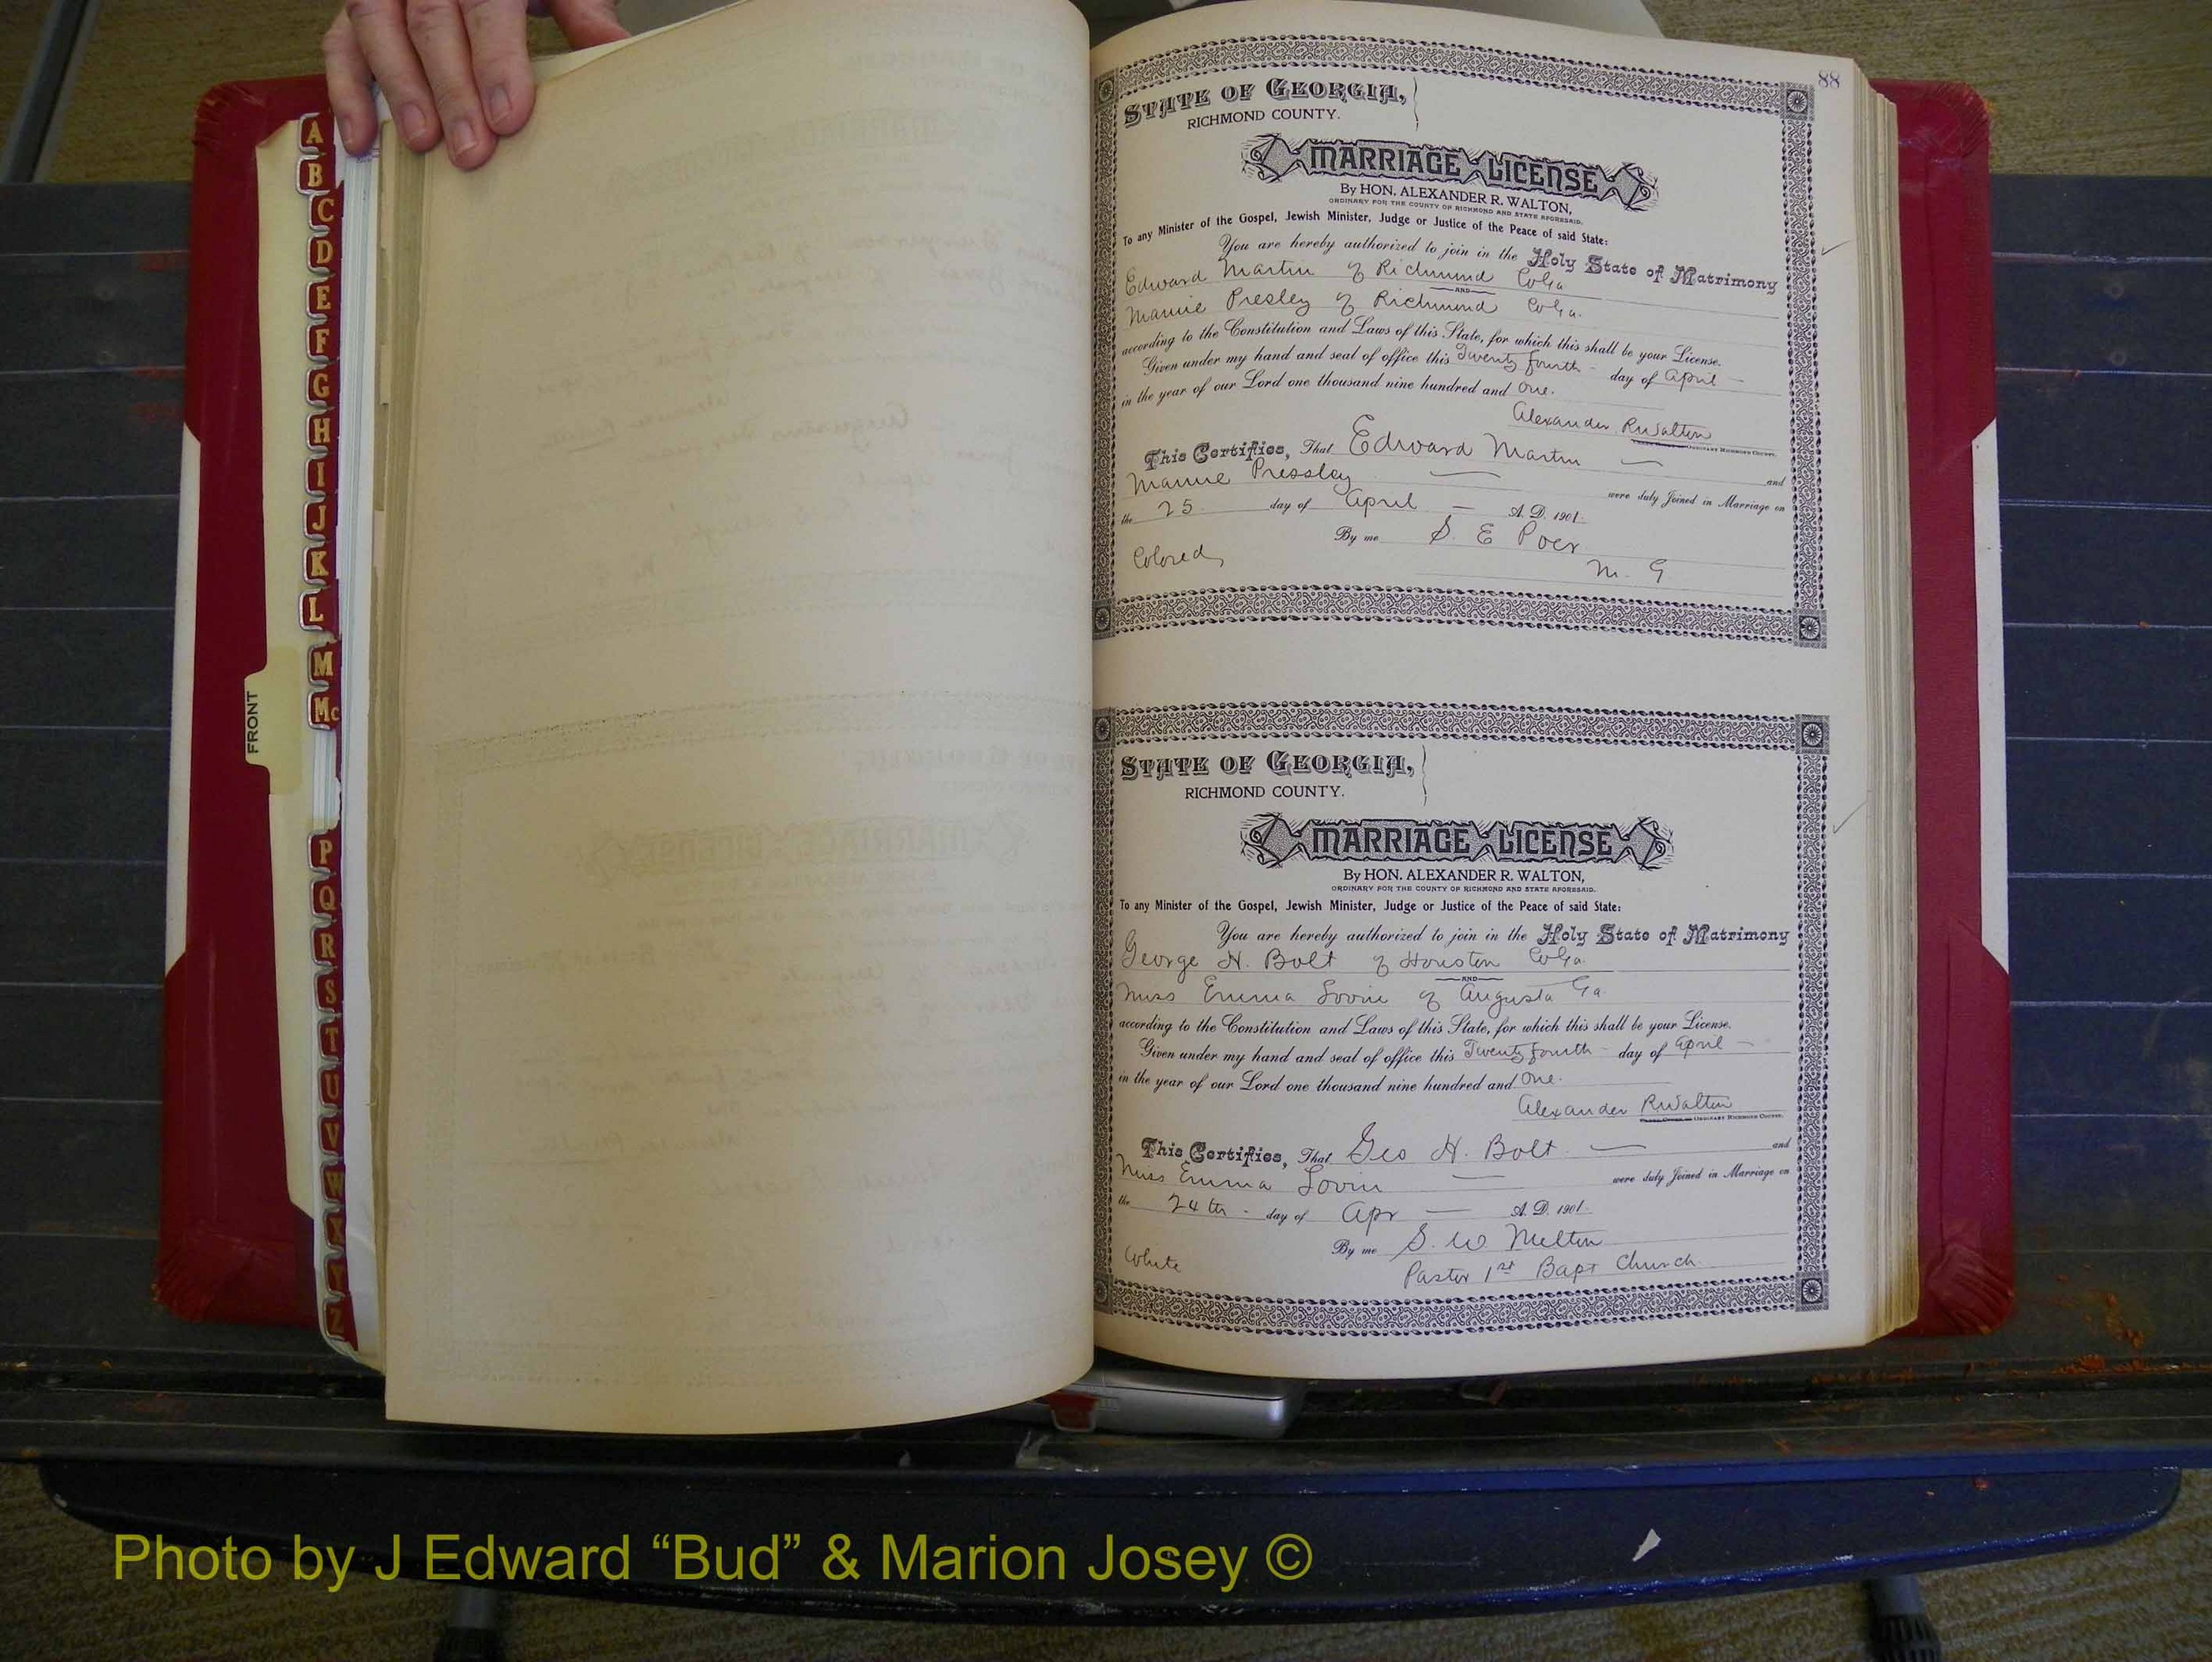 A
B
C
D
E
F
G
H
I
J
K
L
M
Mc
FRONT
P
Q
R
S
T
U
V
W
X
Y
Z
88
STATE OF GEORGIA,
RICHMOND COUNTY.
MARRIAGE LICENSE
By HON. ALEXANDER R. WALTON,
ORDINARY FOR THE COUNTY OF RICHMOND AND STATE AFORESAID.
To any Minister of the Gospel, Jewish Minister, Judge or Justice of the Peace of said State:
You are hereby authorized to join in the Holy State of Matrimony
Edward Martin of Richmond Co Ga
AND
Mamie Presley of Richmond Co Ga.
according to the Constitution and Laws of this State, for which this shall be your License.
Given under my hand and seal of office this Twenty fourth - day of April -
in the year of our Lord one thousand nine hundred and One.
Alexander R Walton
ORDINARY RICHMOND COUNTY.
This Certifies, That Edward Martin — and
Mamie Pressley — were duly Joined in Marriage on
the 25 day of April — A. D. 1901.
By me S. E Poer
Colored M. G
STATE OF GEORGIA,
RICHMOND COUNTY.
MARRIAGE LICENSE
By HON. ALEXANDER R. WALTON,
ORDINARY FOR THE COUNTY OF RICHMOND AND STATE AFORESAID.
To any Minister of the Gospel, Jewish Minister, Judge or Justice of the Peace of said State:
You are hereby authorized to join in the Holy State of Matrimony
George H. Bolt of Houston Co Ga.
AND
Miss Emma Lovin of Augusta Ga.
according to the Constitution and Laws of this State, for which this shall be your License.
Given under my hand and seal of office this Twenty fourth - day of April -
in the year of our Lord one thousand nine hundred and One.
Alexander R Walton
ORDINARY RICHMOND COUNTY.
This Certifies, That Geo H. Bolt — and
Miss Emma Lovin — were duly Joined in Marriage on
the 24th - day of Apr — A. D. 1901.
By me S. W Melton
White Pastor 1st Bapt Church
Photo by J Edward “Bud” & Marion Josey ©